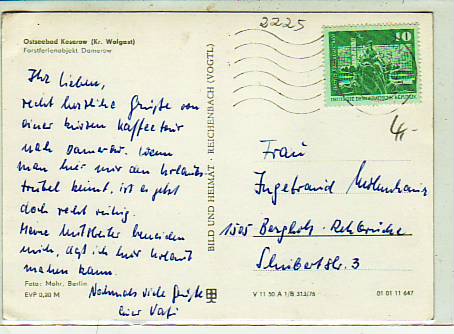 2225
Ostseebad Koserow (Kr. Wolgast)
Forstferienobjekt Damerow
10
DEUTSCHE DEMOKRATISCHE REPUBLIK
4,-
Ihr Lieben,
recht herzliche Grüße von
einer kurzen Kaffeetour
nach Damerow. Wenn
man hier nur den Urlaubs-
trubel kennt, ist es jetzt
doch recht ruhig.
Meine Mitstreiter beneiden
mich, daß ich hier Urlaub
machen kann.
Nochmals viele Grüße
Euer Vati
Foto: Mohr, Berlin
EVP 0,20 M
BILD UND HEIMAT · REICHENBACH (VOGTL)
Frau
Ingetraud
1505 Bergholz-Rehbrücke
Schubertstr. 3
V 11 50 A 1/B 313/76 01 01 11 647